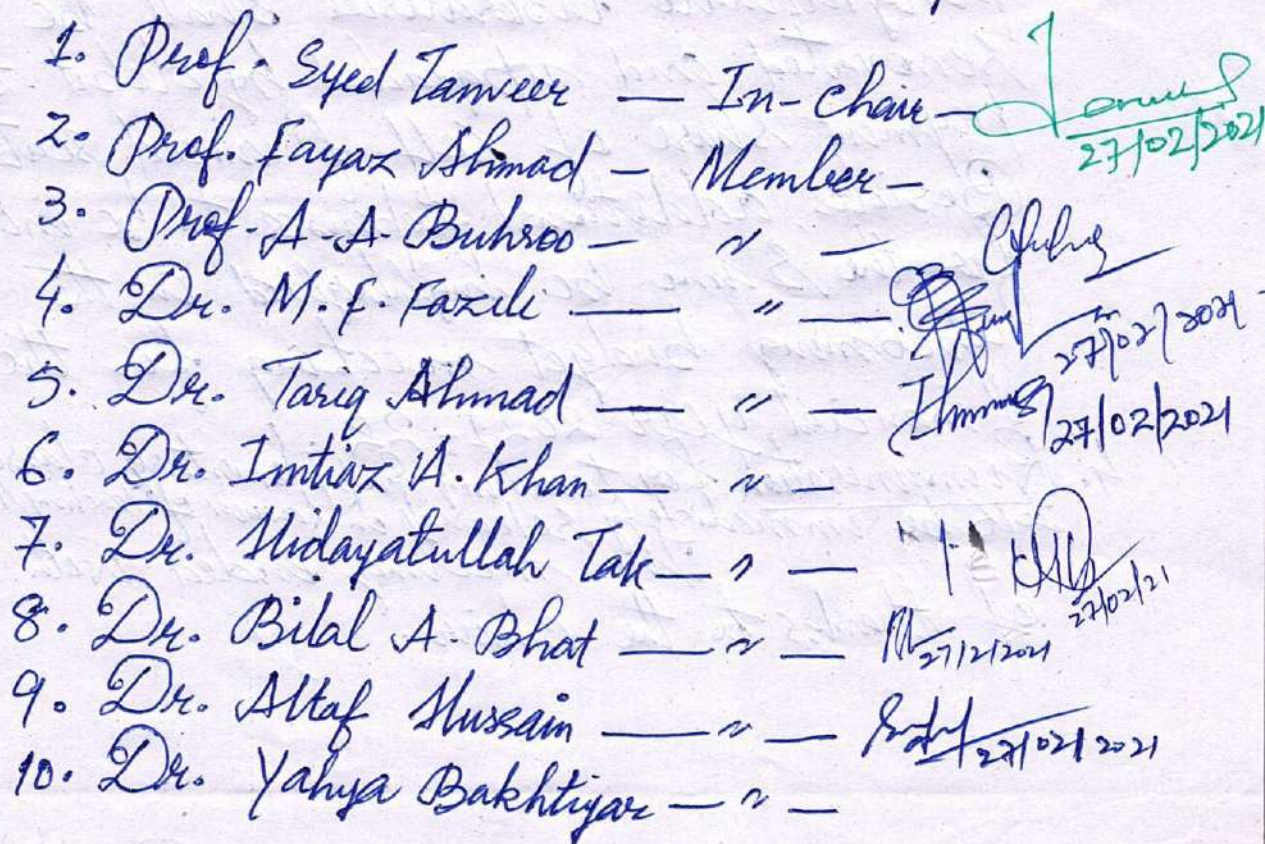 1. Prof. Syed Tanveer — In-chair — 27/02/2021
2. Prof. Fayaz Ahmad — Member —
3. Prof. A. A. Buhroo — " —
4. Dr. M. F. Fazili — " — 27/02/2021
5. Dr. Tariq Ahmad — " — 27/02/2021
6. Dr. Imtiaz A. Khan — " —
7. Dr. Hidayatullah Tak — " — 27/02/21
8. Dr. Bilal A. Bhat — " — 27/2/2021
9. Dr. Altaf Hussain — " — 27/02/2021
10. Dr. Yahya Bakhtiyar — " —